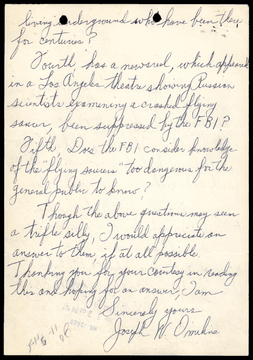 living underground who have been there
for centuries?
Fourth has a newsreel, which appeared
in a Los Angeles theatre showing Russian
scientists examening a crashed flying
saucer, been suppressed by the FBI?
Fifth, Does the FBI consider knowledge
of the "flying saucers" too dangerous for the
general public to know?
Though the above questions may seem
a trifle silly, I would appreciate an
answer to them, if at all possible.
Thanking you for your courtesy in reading
this and hoping for an answer, I am
Sincerely yours
Joseph W.